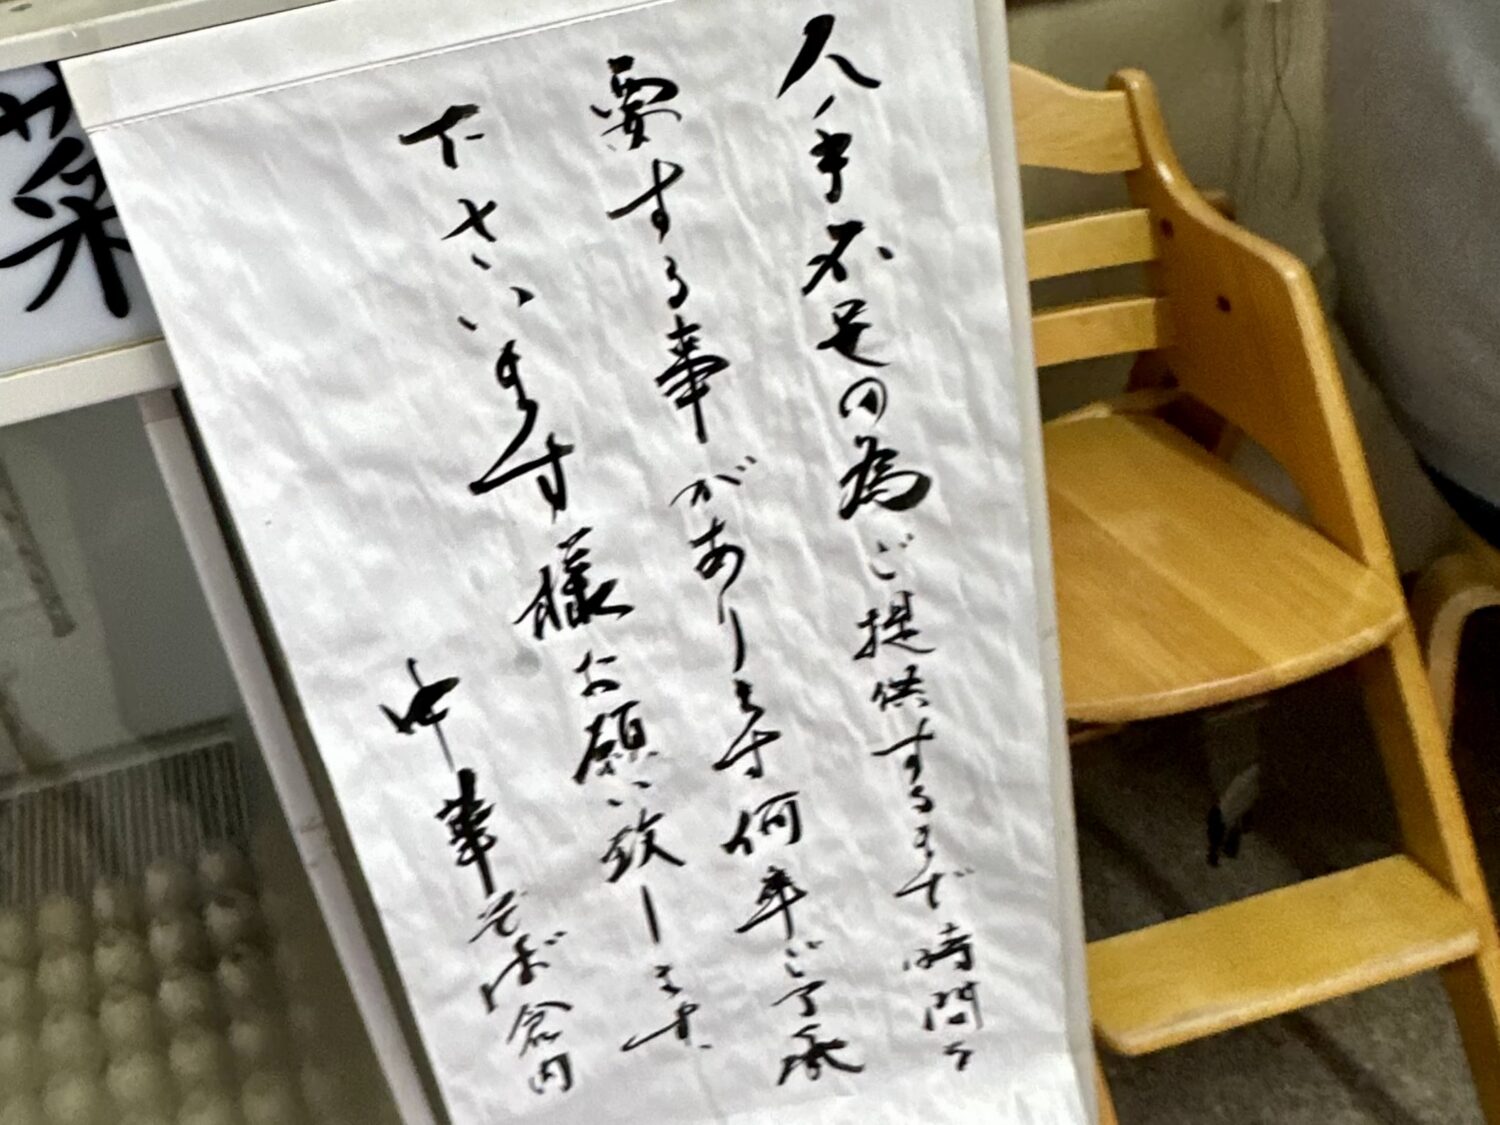 人手不足の為ご提供するまで時間を
要する事があります何卒ご了承
下さいます様お願い致します。
中華そば倉内
菜